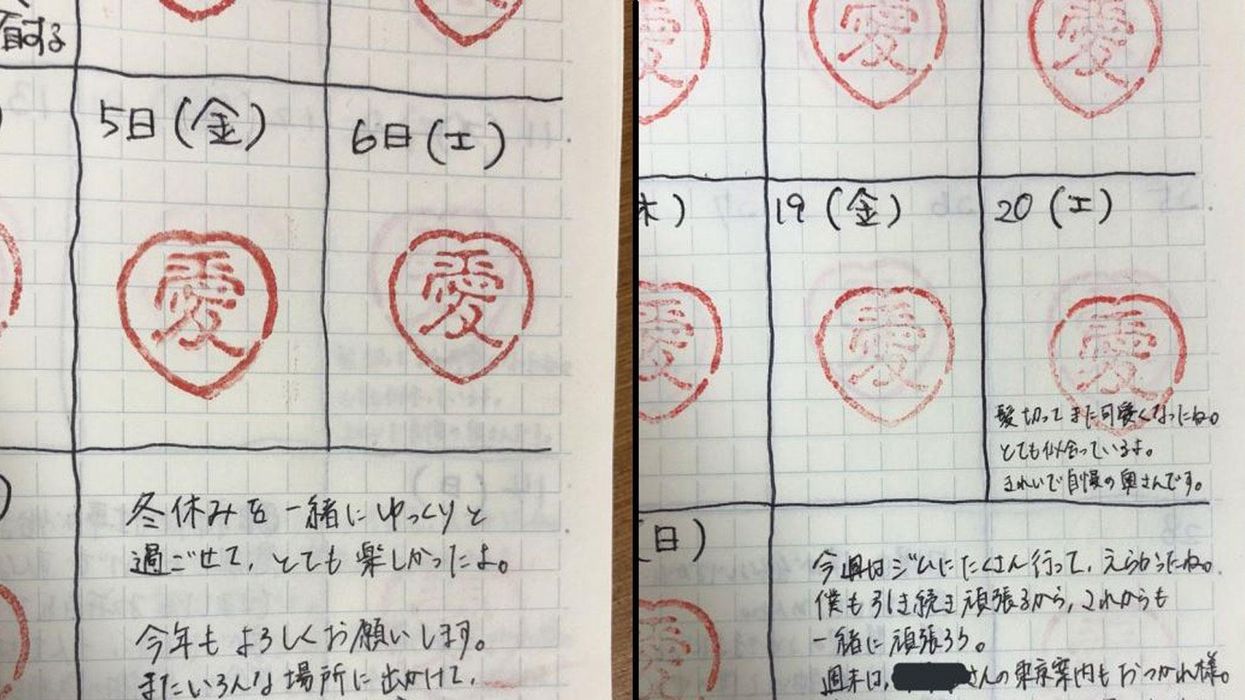 愛
5日(金)
6日(土)
愛
愛
冬休みを一緒にゆっくりと
過ごせて、とても楽しかったよ。
今年もよろしくお願いします。
またいろんな場所に出かけて、
愛
愛
愛
木)
19(金)
20(土)
愛
愛
愛
髪切ってまた可愛くなったね。
とても似合っているよ。
きれいで自慢の奥さんです。
(日)
今週はジムにたくさん行って、えらかったね。
僕も引き続き頑張るから、これからも
一緒に頑張ろう。
週末は、さんの東京案内もおつかれ様。